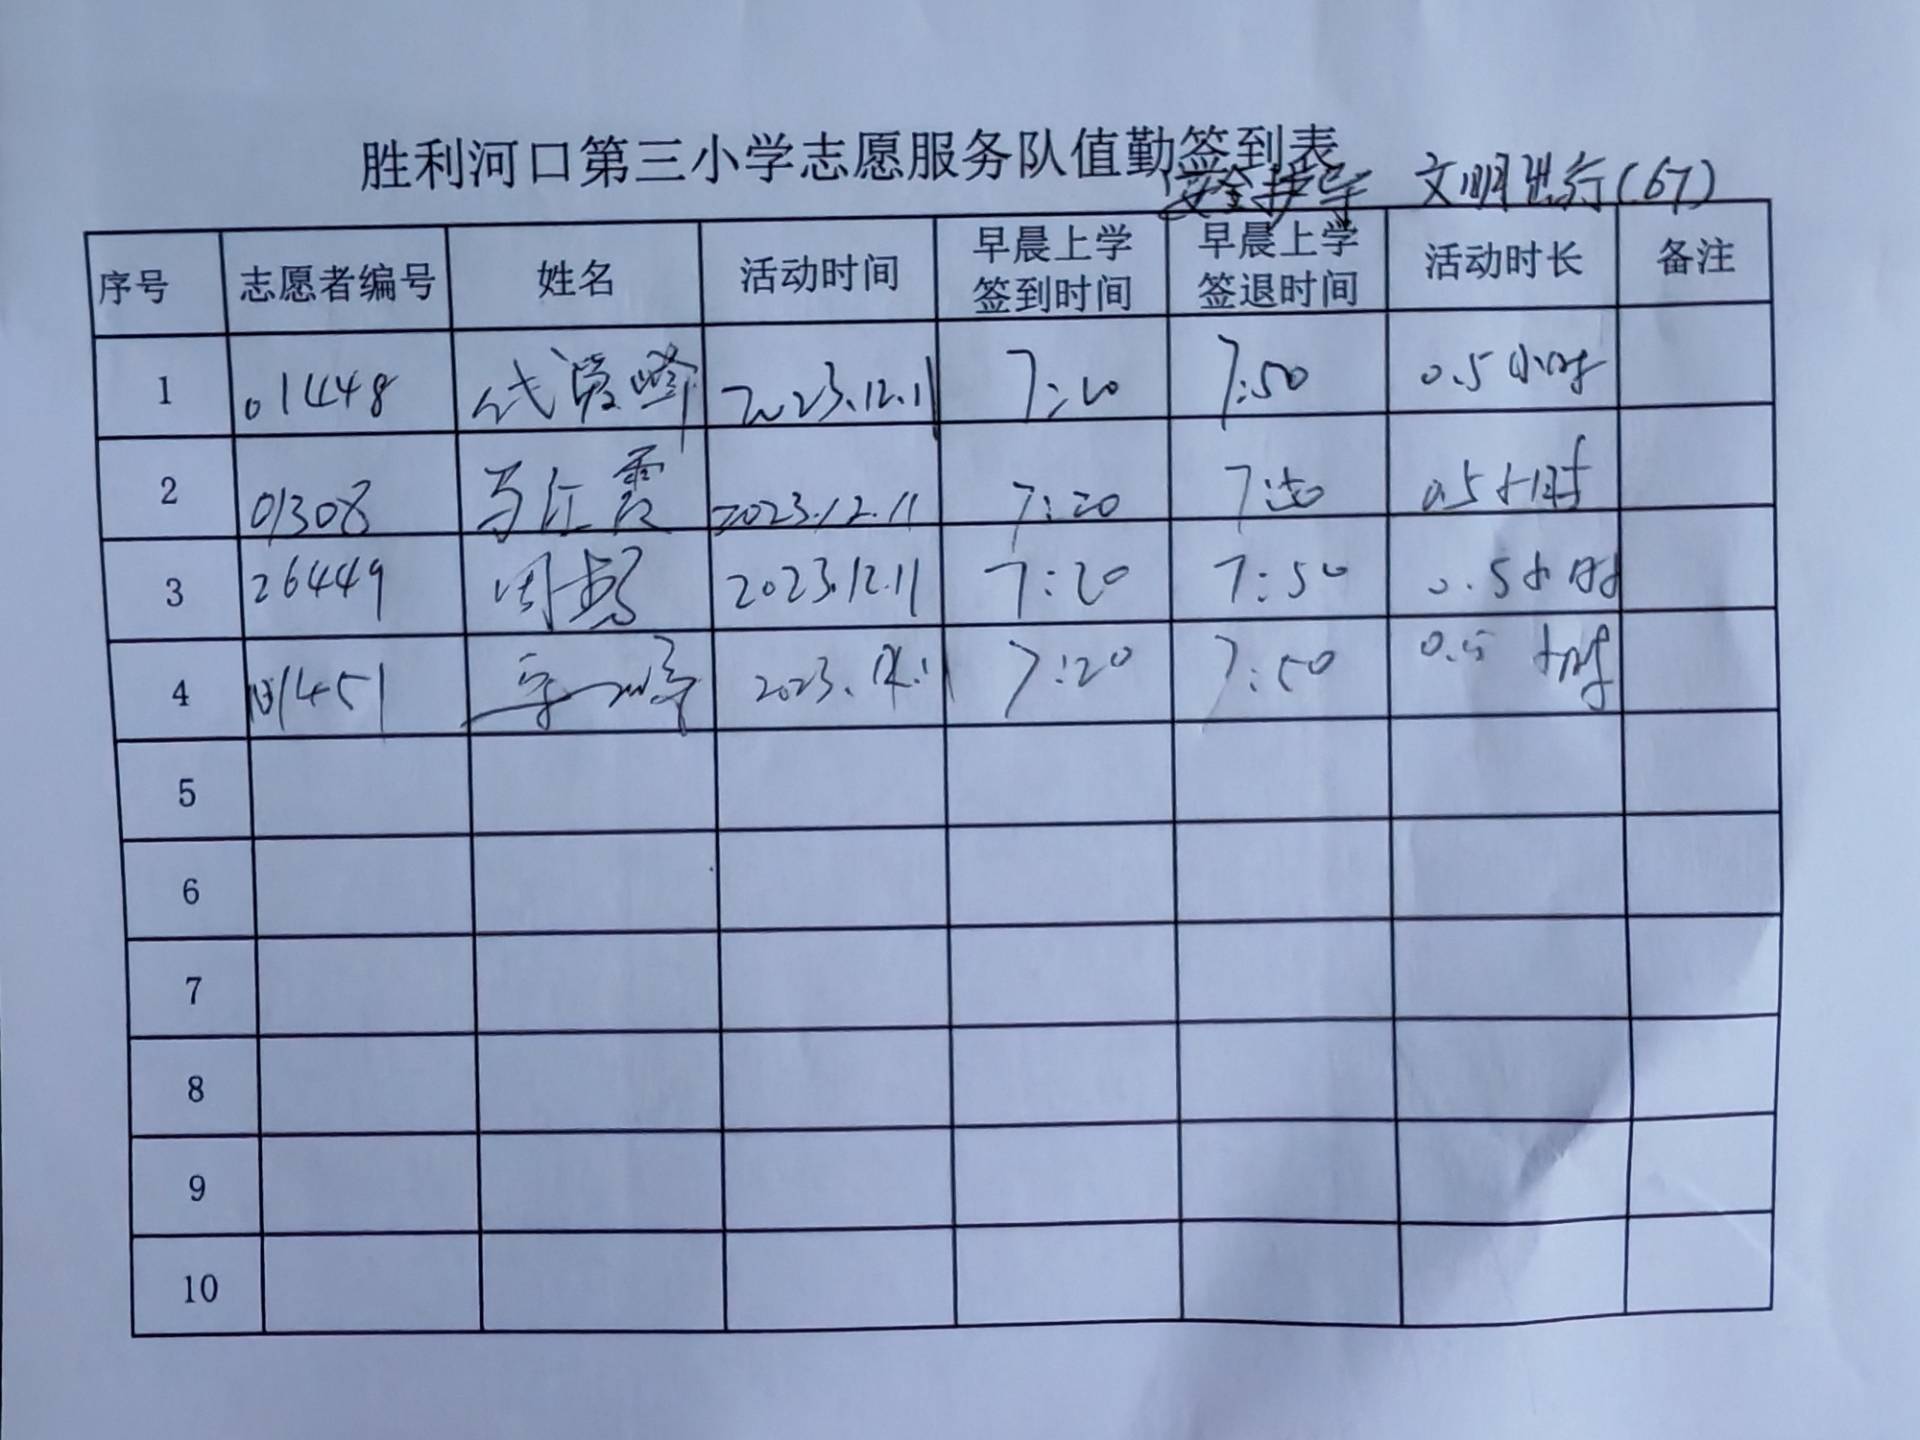 胜利河口第三小学志愿服务队值勤签到表
安全护学 文明出行(67)
序号 志愿者编号 姓名 活动时间 早晨上学签到时间 早晨上学签退时间 活动时长 备注
1 01448 代 峰 2023.12.11 7:20 7:50 0.5小时
2 01308 马红霞 2023.12.11 7:20 7:50 0.5小时
3 26449 周 2023.12.11 7:20 7:50 0.5小时
4 01451 2023.12.11 7:20 7:50 0.5小时
5
6
7
8
9
10